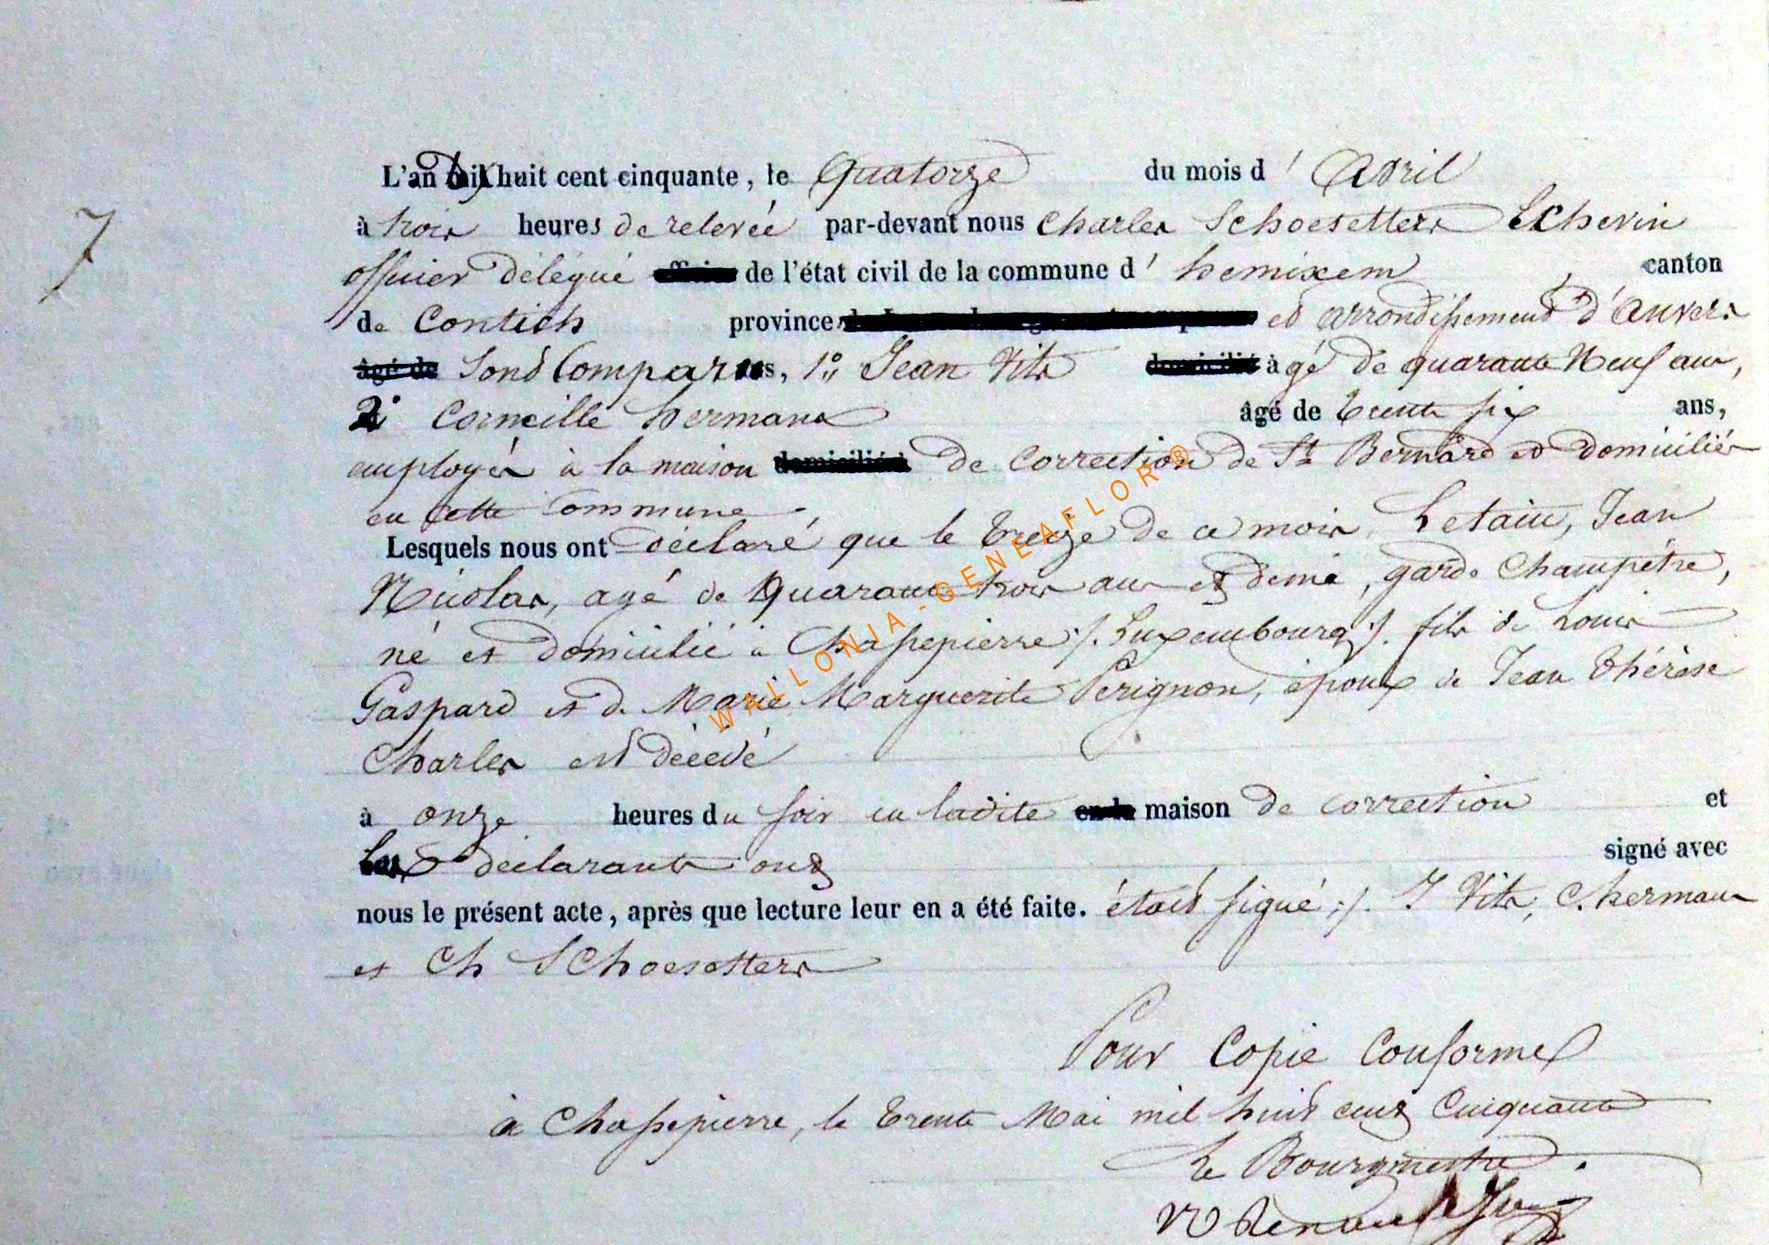 7
L'an Dix huit cent cinquante, le Quatorze du mois d' Avril
à trois heures de relevée par-devant nous Charles Schoesetters Echevin
officier délégué officier de l'état civil de la commune d' hemixem, canton
de Contich province et arrondissement d'Anvers
âgé de Sont Comparus, 1° Jean Vits domicilié âgé de quarante Neuf ans,
2° Corneille hermans âgé de trente six ans,
employés à la maison domiciliés de correction de St Bernard et domiciliés
en cette Commune,
Lesquels nous ont déclaré que le treize de ce mois, Letaiu, Jean
Nicolas, agé de Quarante trois ans et demi, garde Champêtre,
né et domicilié à Chassepierre /. Luxembourg /. fils de Louis
Gaspard et de Marie Marguerite Perignon, époux de Jean Thérèse
Charles est décédé
à onze heures du soir en ladite en la maison de correction et
les déclarants ont signé avec
nous le présent acte, après que lecture leur en a été faite. étaient signé :/. J Vits, C. hermans
et Ch Schoesetters
Pour Copie Conforme
à Chassepierre, le trente Mai mil huit cent Cinquante
Le Bourgmestre.
WALLONIA-GENEAFLOR®